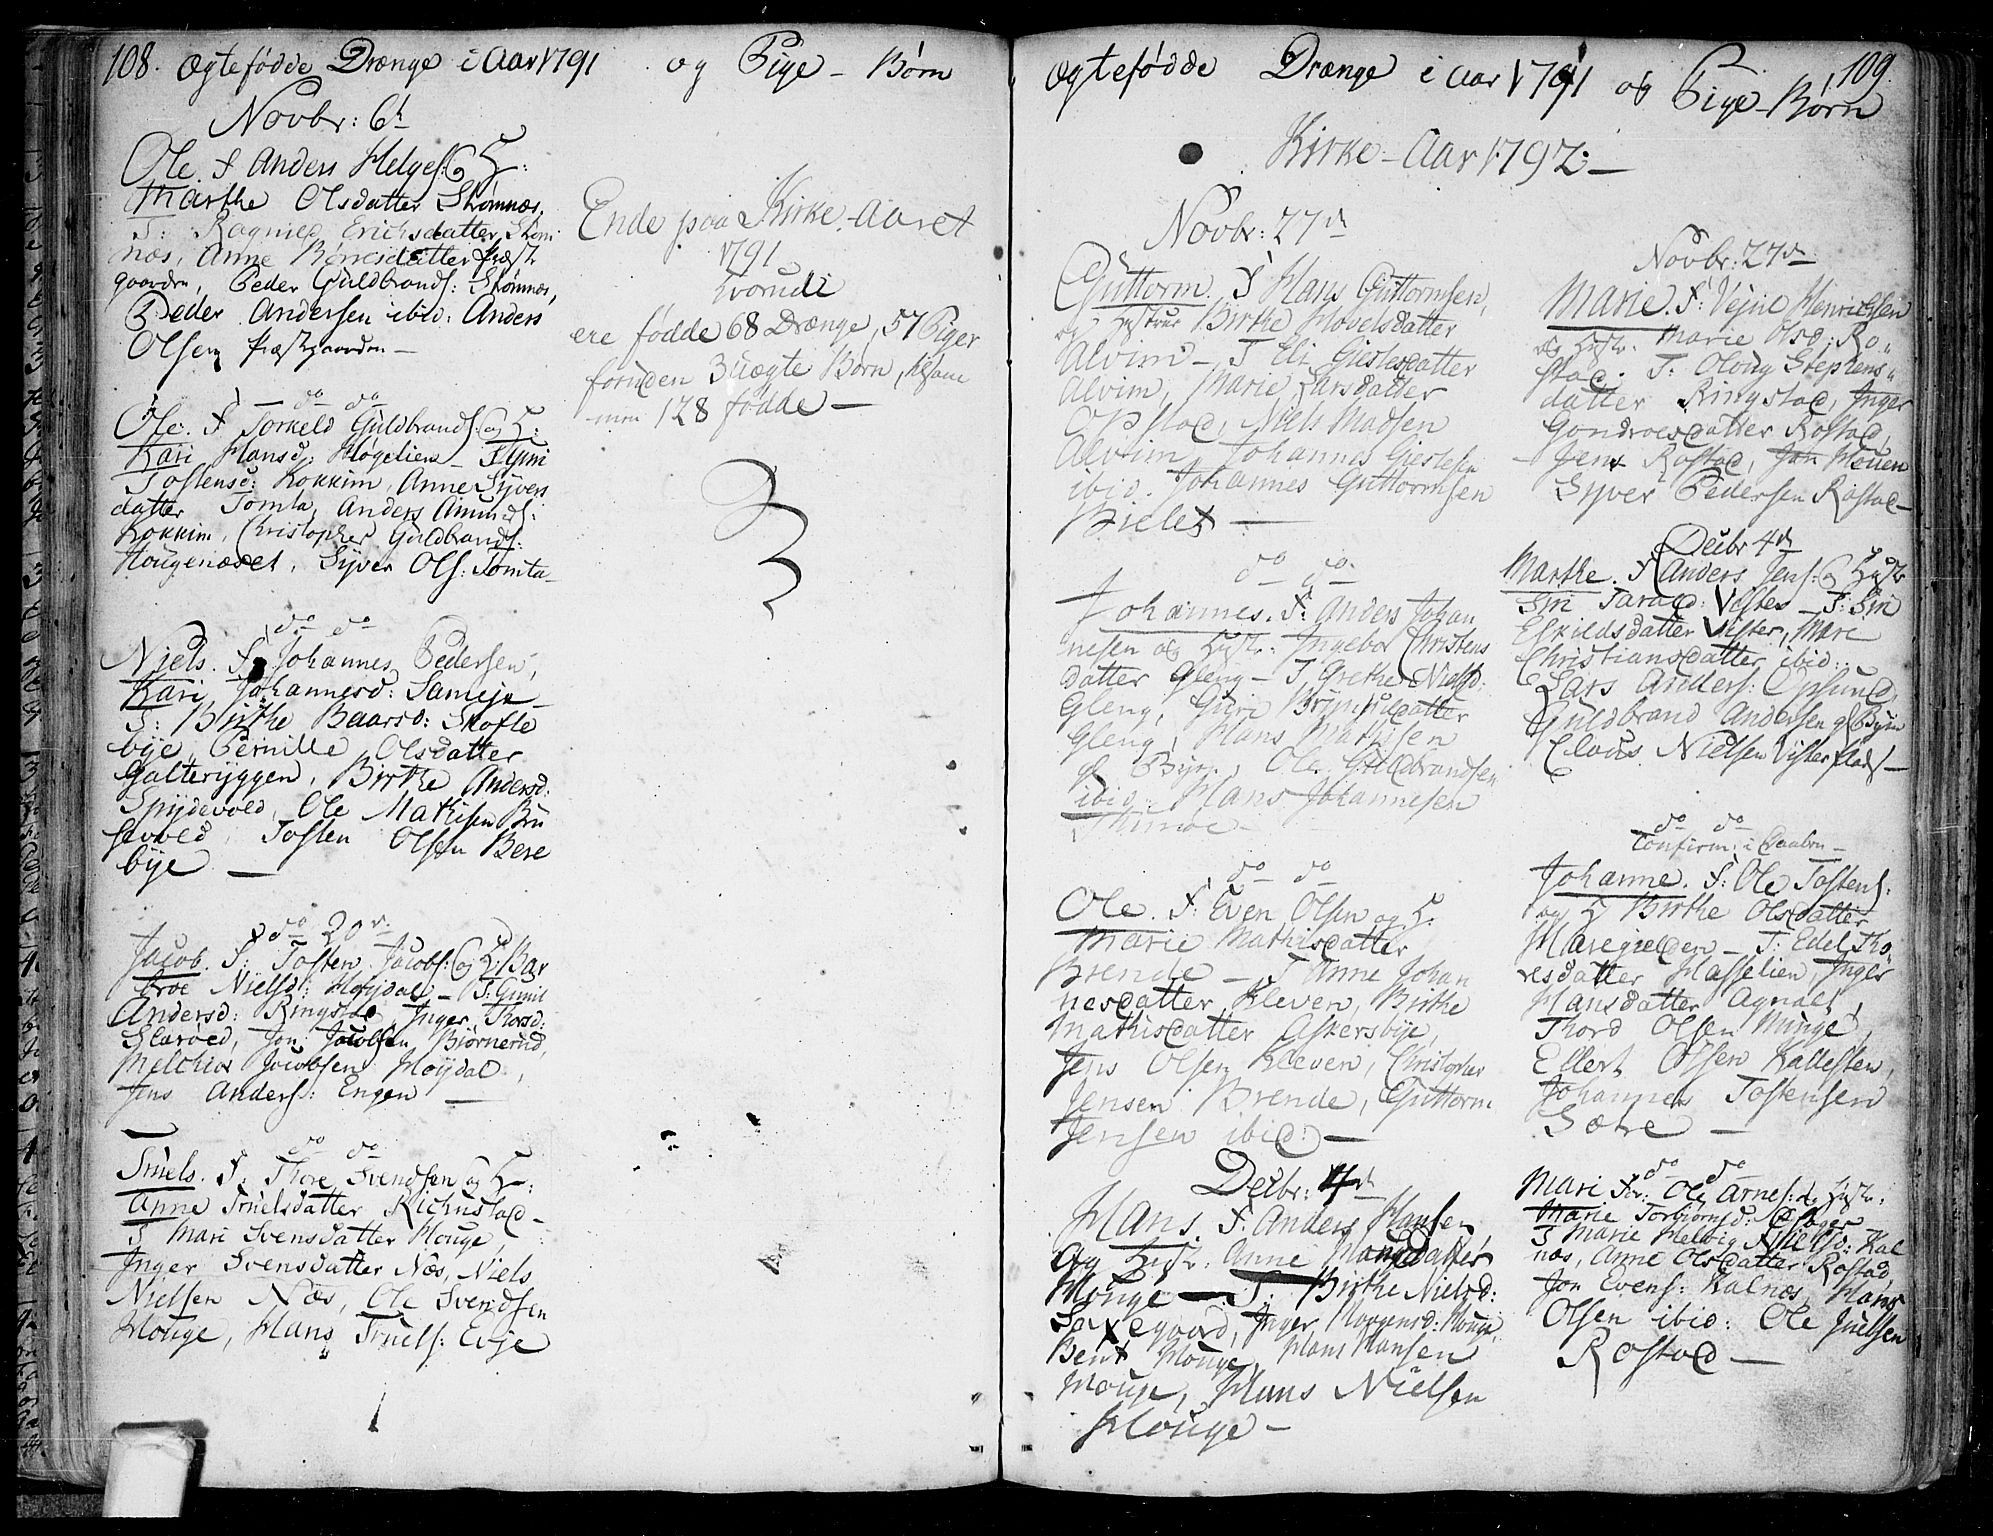 108. Ægtefødde Drænge i Aar 1791 og Pige - Børn
Novbr: 6th
Ole. F Anders Helges: og H:
Marthe Olsdatter Skømnæs.
T: Ragnild Erichsdatter Skøm
næs, Anne Børresdatter Præst
gaarden, Peder Guldbrands: Skømnæs,
Peder Andersen ibid: Anders
Olsen Præstgaarden —
do do
Ole. F Torkeld Guldbrands: og H:
Kari Hansd: Høgelien — T Guri
Tostensd: Kokkim, Anne Syvers
datter Tomta, Anders Amunds:
Kokkim, Christopher Guldbrands:
Hougenæset, Syver Ols: Tomta —
do do
Niels. F. Johannes Pedersen,
Kari Johannesd: Sameje —
T: Birthe Baarsd: Skofte
bye, Pernille Olsdatter
Galteryggen, Birthe Andersd:
Spydevold, Ole Mathisen Bru
sevold, Tosten Olsen Bere
bye —
do 20de
Jacob. F: Tosten Jacobs: og H: Bar
broe Nielsd: Høydal — T: Gunil
Andersd: Ringstad, Inger Thorsd:
Skarød, Jon Jacobsen Biørnerud,
Melchior Jacobsen Høydal,
Jens Anders: Engen —
do do
Truels. F. Thore Svendsen og H:
Anne Truelsdatter Richustad —
T Mari Svensdatter Houge
Inger Svensdatter Næs, Niels
Nielsen Næs, Ole Svendsen
Houge, Hans Truels: Evje
Ende paa Kirke-Aaret
1791
hvorudi
ere fødde 68 Drænge, 57 Piger
foruden 3 uægte Børn, tilsam
men 128 fødde —
Ægtefødde Drænge i Aar 1791 og Pige - Børn 109
Kirke - Aar 1792: —
Novbr: 27de
Guttorm. F Hans Guttormsen,
og Hustrue Birthe Hovelsdatter
Alvim — T Eli Giestesdatter
Alvim, Marie Larsdatter
Opstad, Niels Madsen
Alvim, Johannes Giestesen
ibid. Johannes Guttormsen
Bielet —
do do
Johannes. F: Anders Johan
nesen og Hust: Ingebor Christens
datter Gleng — T. Grethe Nielsd:
Gleng, Guri Brynildsdatter
Gleng, Hans Mathisen
gl Bÿn, Ole Guldbrandsen
ibid: Hans Johannesen
Thunoe —
do do
Ole. F: Even Olsen og H.
Marie Mathisdatter
Brende — T Anne Johan
nesdatter Kleven, Birthe
Mathisdatter Askersbye,
Jens Olsen Kleven, Christopher
Jensen Brende, Guttorm
Jensen ibid: —
Decbr: 4de
Hans. F. Anders Hansen
og Hust. Anne Mongsdatter
Houge — T. Birthe Nielsd:
Saxegaard, Inger Morgensd: Houge,
Bent Houge, Hans Hansen
Houge, Hans Nielsen
Houge —
Novbr: 27de
Marie. F: Vejne Henrichsen
og Hust. Marie Olsd: Ro„
stad. T: Oloug Stephens„
datter Ringstad, Inger
Gondroesdatter Rostad,
Jens Rostad, Jon Mouen
Syver Pedersen Rostad —
Decbr 4de
Marthe. F Anders Jens: og Hust
Siri Tarald: Vister — T: Siri
Eskildsdatter Vister, Mari
Christiansdatter ibid:
Lars Anders: Opsund,
Guldbrand Andersen gl Byen
Claus Nielsen Vister Plads —
do do
Confirm: i Daaben —
Johanne. F: Ole Tostens:
og H Birthe Olsdatter
Haregielden — T: Edel Tho
resdatter Hasselien, Inger
Hansdatter Agnalt,
Thord Olsen Minge,
Ellert Olsen Kallesten,
Johannes Tostensen
Sætre —
do do
Mari F: Ole Arnes: og Hust.
Marie Torbiørnsd: Næsager
T Marie Helvig Nielsd: Kal
næs, Anne Olsdatter Rostad,
Jon Evens: Kalnæs, Hans
Olsen ibid: Ole Juelsen
Rostad —